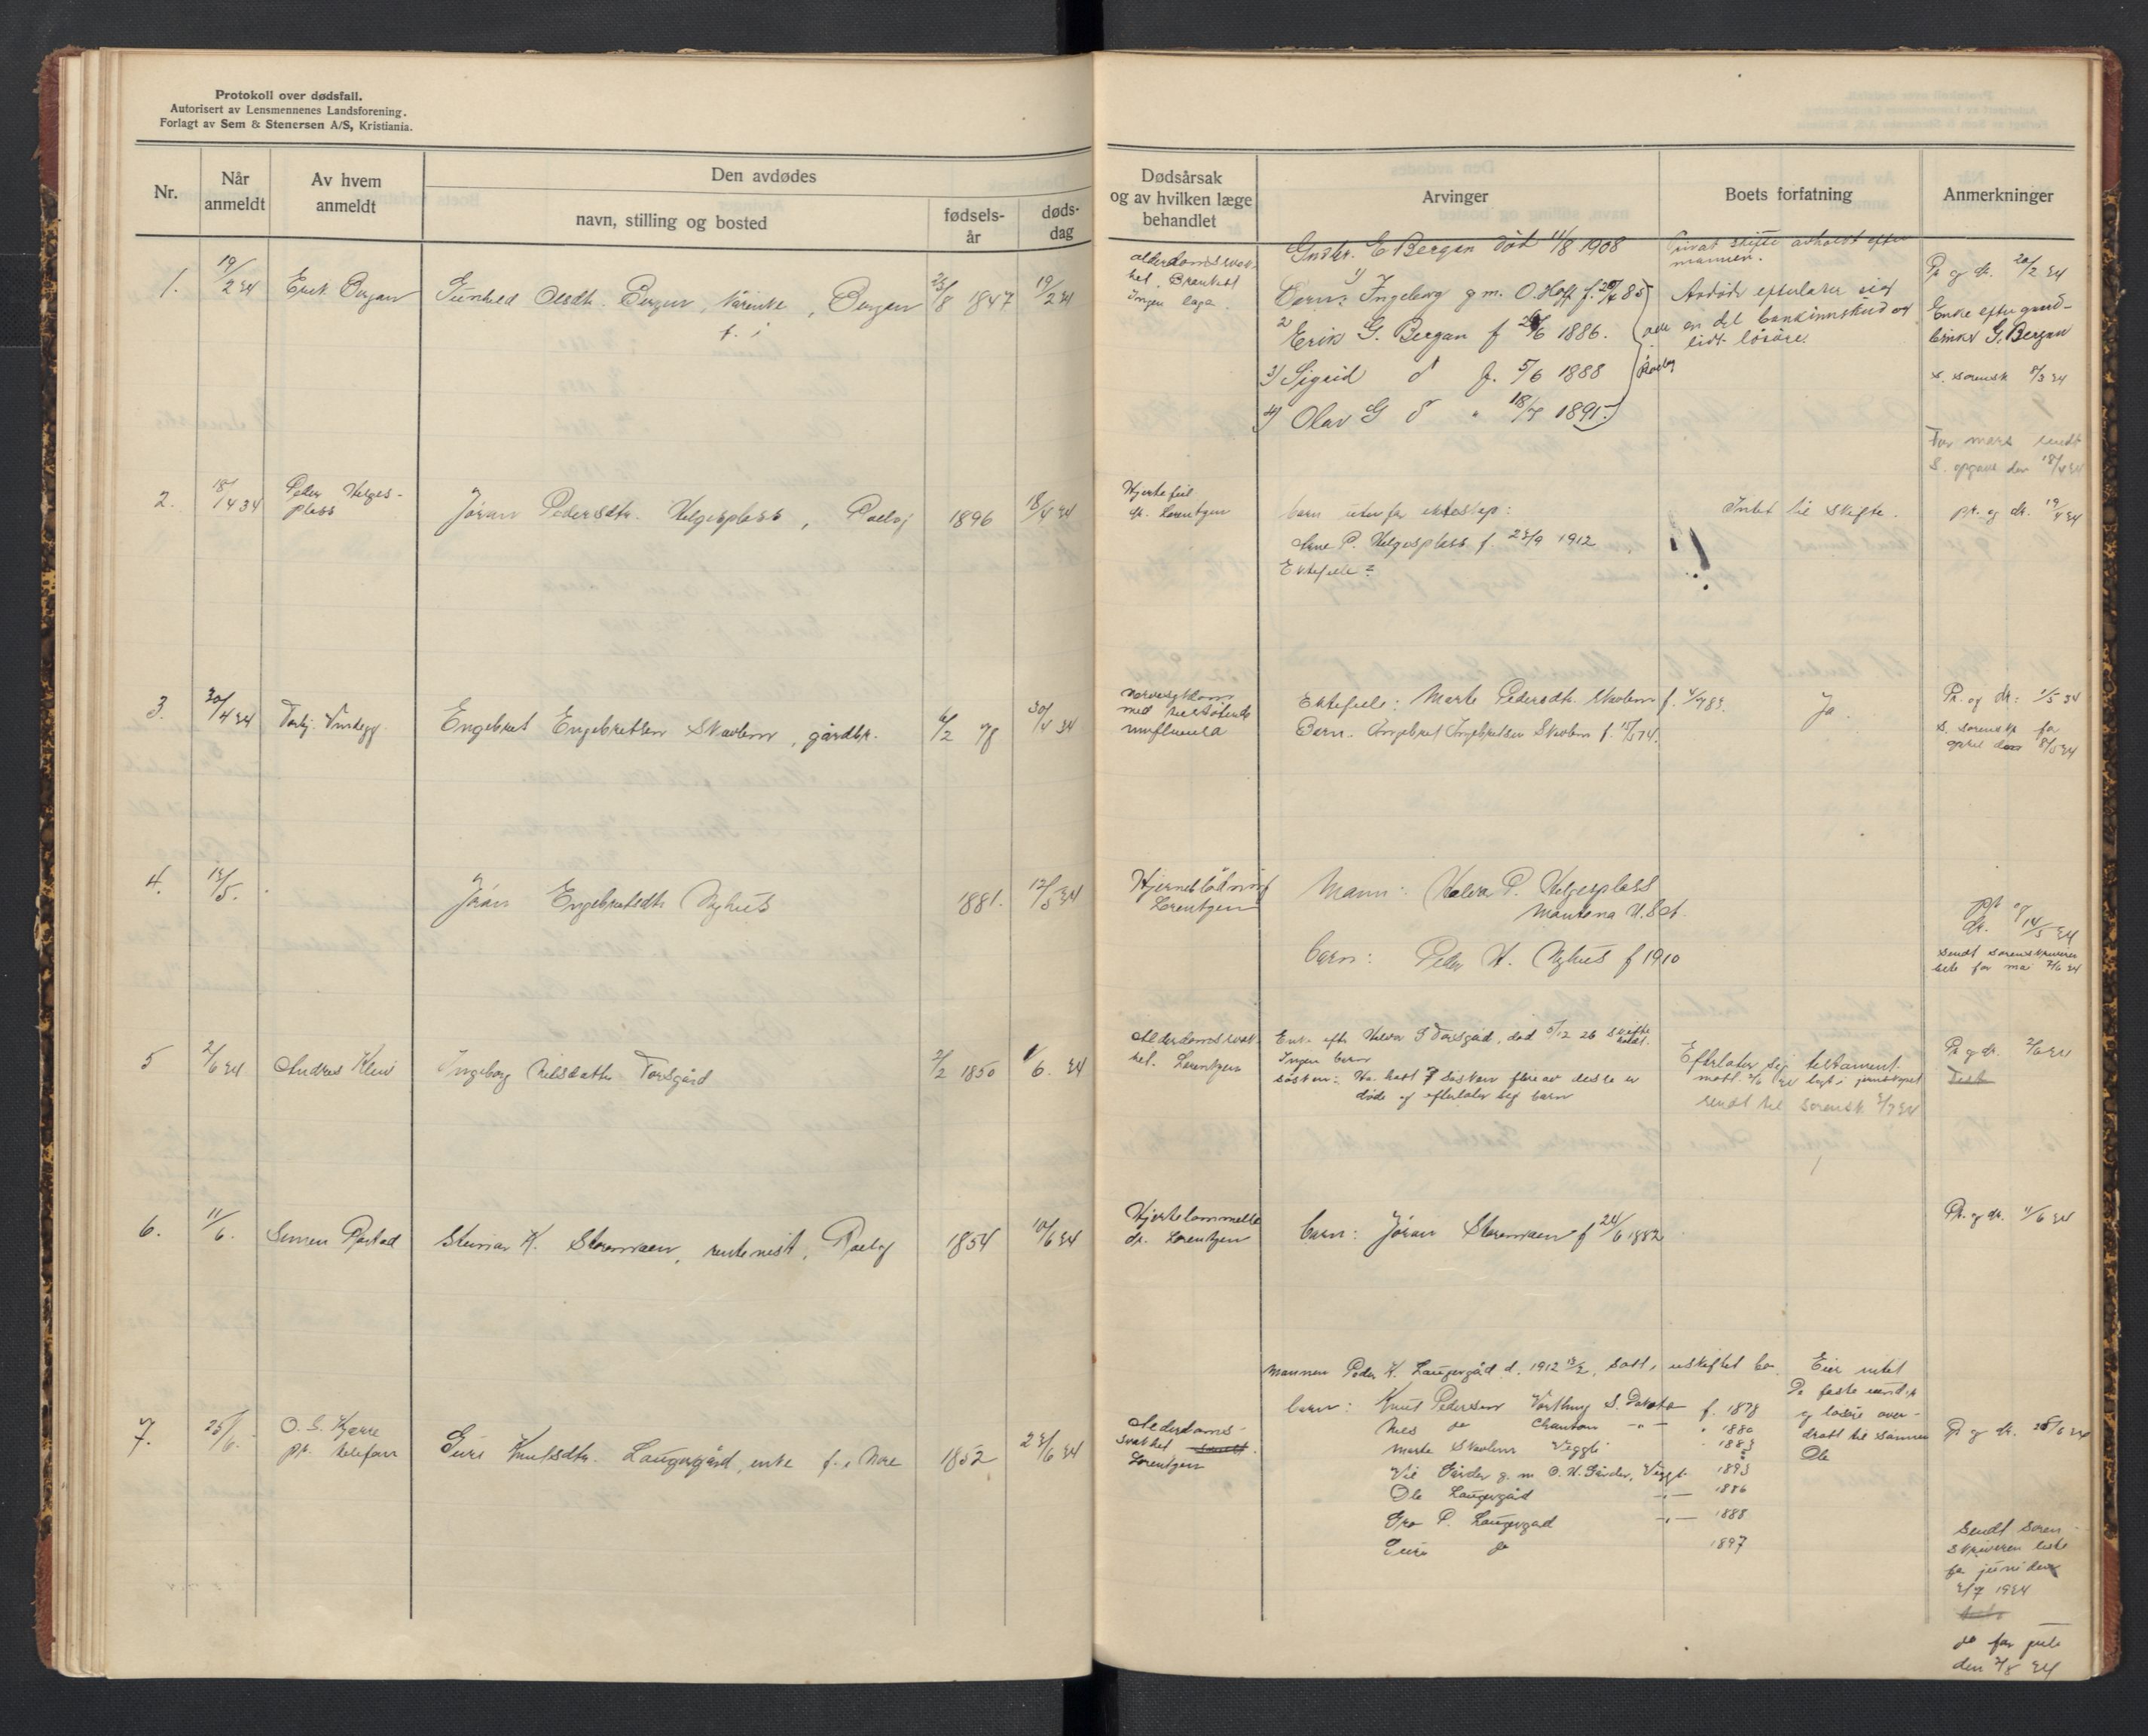 Protokoll over dødsfall.
Autorisert av Lensmennenes Landsforening.
Forlagt av Sem & Stenersen A/S, Kristiania.
Nr.
Når anmeldt
Av hvem anmeldt
Den avdødes
navn, stilling og bosted
fødsels-år
døds-dag
Dødsårsak og av hvilken læge behandlet
Arvinger
Boets forfatning
Anmerkninger
1. 19/2 34 Erik Bergan Gunhild Olsdtr. Bergan, kårenke, Bergan 1847 19/2 34
f. i
alderdomssvak-
het, Brønkit
Ingen læge
Gmbr. E Bergan død 11/8 1908
Barn: 1) Ingeborg g.m. O. Hoff f. 85
2 Erik G. Bergan f 6 1886.
3) Sigrid d f. 5/6 1888
4) Olav G d " 18/7 1891.
alle
Privat skifte avholdt efter
mannen.
Avdøde efterlater sig
en del bankinnskud og
lidt løsøre.
Pr og dr. 20/2 34
Enke efter gard-
bruker G. Bergan
s. sorensk 8/3 34
For mars sendt
S. opgave den 18/4 34
2. 18/4 34 Peder Helges-
plass
Jøran Pedersdtr. Helgesplass, Rollag 1896 18/4 34
Hjertefeil
dr. Lorentzen
barn utenfor ekteskap:
Arne P. Helgesplass f. 23/9 1912
Ektefelle =
Intet til skifte.
pr. og dr. 19/4 34
3. 30/4 34 Torbj. Vindegg. Engebret Engebretsen Skavlem, gårdbr. 6/2 48 30/4 34
med tilstøtende
influensa
Ektefelle: Marte Pedersdtr. Skavlem f. 4/4 83.
Barn. Engebret Engebretsen Skavlem f. 15/5 74.
Ja.
Pr. og dr: 1/5 34
S. sorensk for
april den 8/5 34
4. 12/5. Jøran Engebretsdtr Nyhus 1881. 12/5 34
Hjerneblødning
Lorentzen
Mann: Halvor P. Helgesplass
Montana U.S.A.
barn: Peder H. Nyhus f 1910
pr og
dr. 14/5 34
Sendt sorenskriveren
liste for mai 2/6 34
5 2/6 34 Andres Kleiv Ingeborg Nilsdatter Torsgård 2/2 1850 1/6. 34
Alderdomssvak-
het. Lorentzen
Enke efter Halvor S Torsgård, død 5/12 26 skifte
holdt.
Ingen barn
søsken: Ha. hatt 7 søsken flere av disse er
døde og efterlater sig barn
Efterlater sig testament.
mott. 2/6 34 lagt i pengskapet
sendt til sorensk. 2/7 34
Pr og dr. 2/6 34
Test
6. 11/6. Simen Rostad Steinar K. Storemoen, rentenist, Rollag 1854 10/6 34
Hjertelammelse
dr. Lorentzen
barn: Jøran Storemoen f 24/6 1882
Pr. og dr. 11/6 34
7. 25/6. O. G. Kjerre
pr. telefon
Guri Knutsdtr. Laugergård, enke f. i Nore 1852 23/6 34
Alderdoms-
svakhet
Lorentzen
Mannen Peder K. Laugergård d. 1912 13/2, satt i uskiftet bo.
barn: Knut Pedersen S. Dakota f. 1878
Nils do " 1880
Marte Skavlem Veggli " 1883
Gårder g. m O. H. Gårder, Veggli 1893
Ole Laugergård 1886
Gro P. Laugergård 1888
Guri do 1897
Eier intet
De faste eiend.
og løsøre over-
dratt til sønnen
Ole
Pr og dr. 25/6 34
Sendt soren-
skriveren liste
for juni den
2/7 1934
do for juli
den 2/8 34